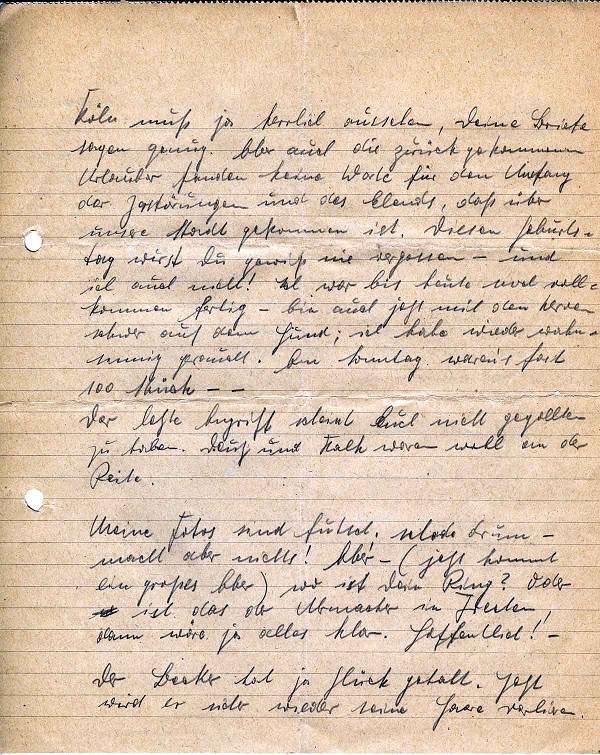 Köln muß ja herrlich aussehen, Deine Briefe
sagen genug. Aber auch die zurückgekommenen
Urlauber fanden keine Worte für den Umfang
der Zerstörungen und des Elends, daß über
unsere Stadt gekommen ist. Diesen Geburts-
tag wirst Du gewiß nie vergessen – und
ich auch nicht! Ich war bis heute noch voll-
kommen fertig – bin auch jetzt mit den Nerven
schwer auf dem Hund; ich habe wieder wahn-
sinnig geraucht. Am Sonntag waren's fast
100 Stück – –
Der letzte Angriff scheint Euch nicht gegolten
zu haben. Deutz und Kalk waren wohl an der
Reihe.
Meine Fotos sind futsch, schade drum –
macht aber nichts! Aber – (jetzt kommt
ein großes Aber) wo ist Dein Ring? Oder
ist das der Uhrmacher in
dann wäre ja alles klar. Hoffentlich! –
Der Becker hat ja Glück gehabt. Jetzt
wird er sicher wieder seine Haare verlieren.